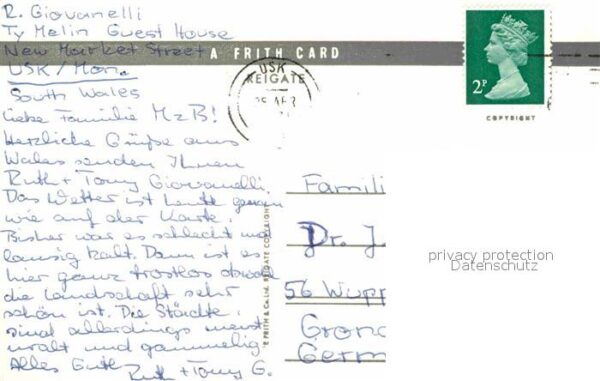 R. Giovanelli
Ty Melin Guest House
New Market Street
USK / Mon.
South Wales
A FRITH CARD
USK
REIGATE
2P
COPYRIGHT
Liebe Familie M z B!
Herzliche Grüße aus
Wales senden Ihnen
Ruth + Tony Giovanelli.
Das Wetter ist heute genau
wie auf der Karte.
Bisher war es schlecht und
lausig kalt. Dann ist es
hier ganz trostlos obwohl
die Landschaft sehr
schön ist. Die Städte
sind allerdings meist
uralt und gammelig.
Alles Gute
Ruth + Tony G.
F FRITH & Co. Ltd. REIGATE COPYRIGHT
Famili
Dr. J.
56 Wupp
Germ
privacy protection
Datenschutz